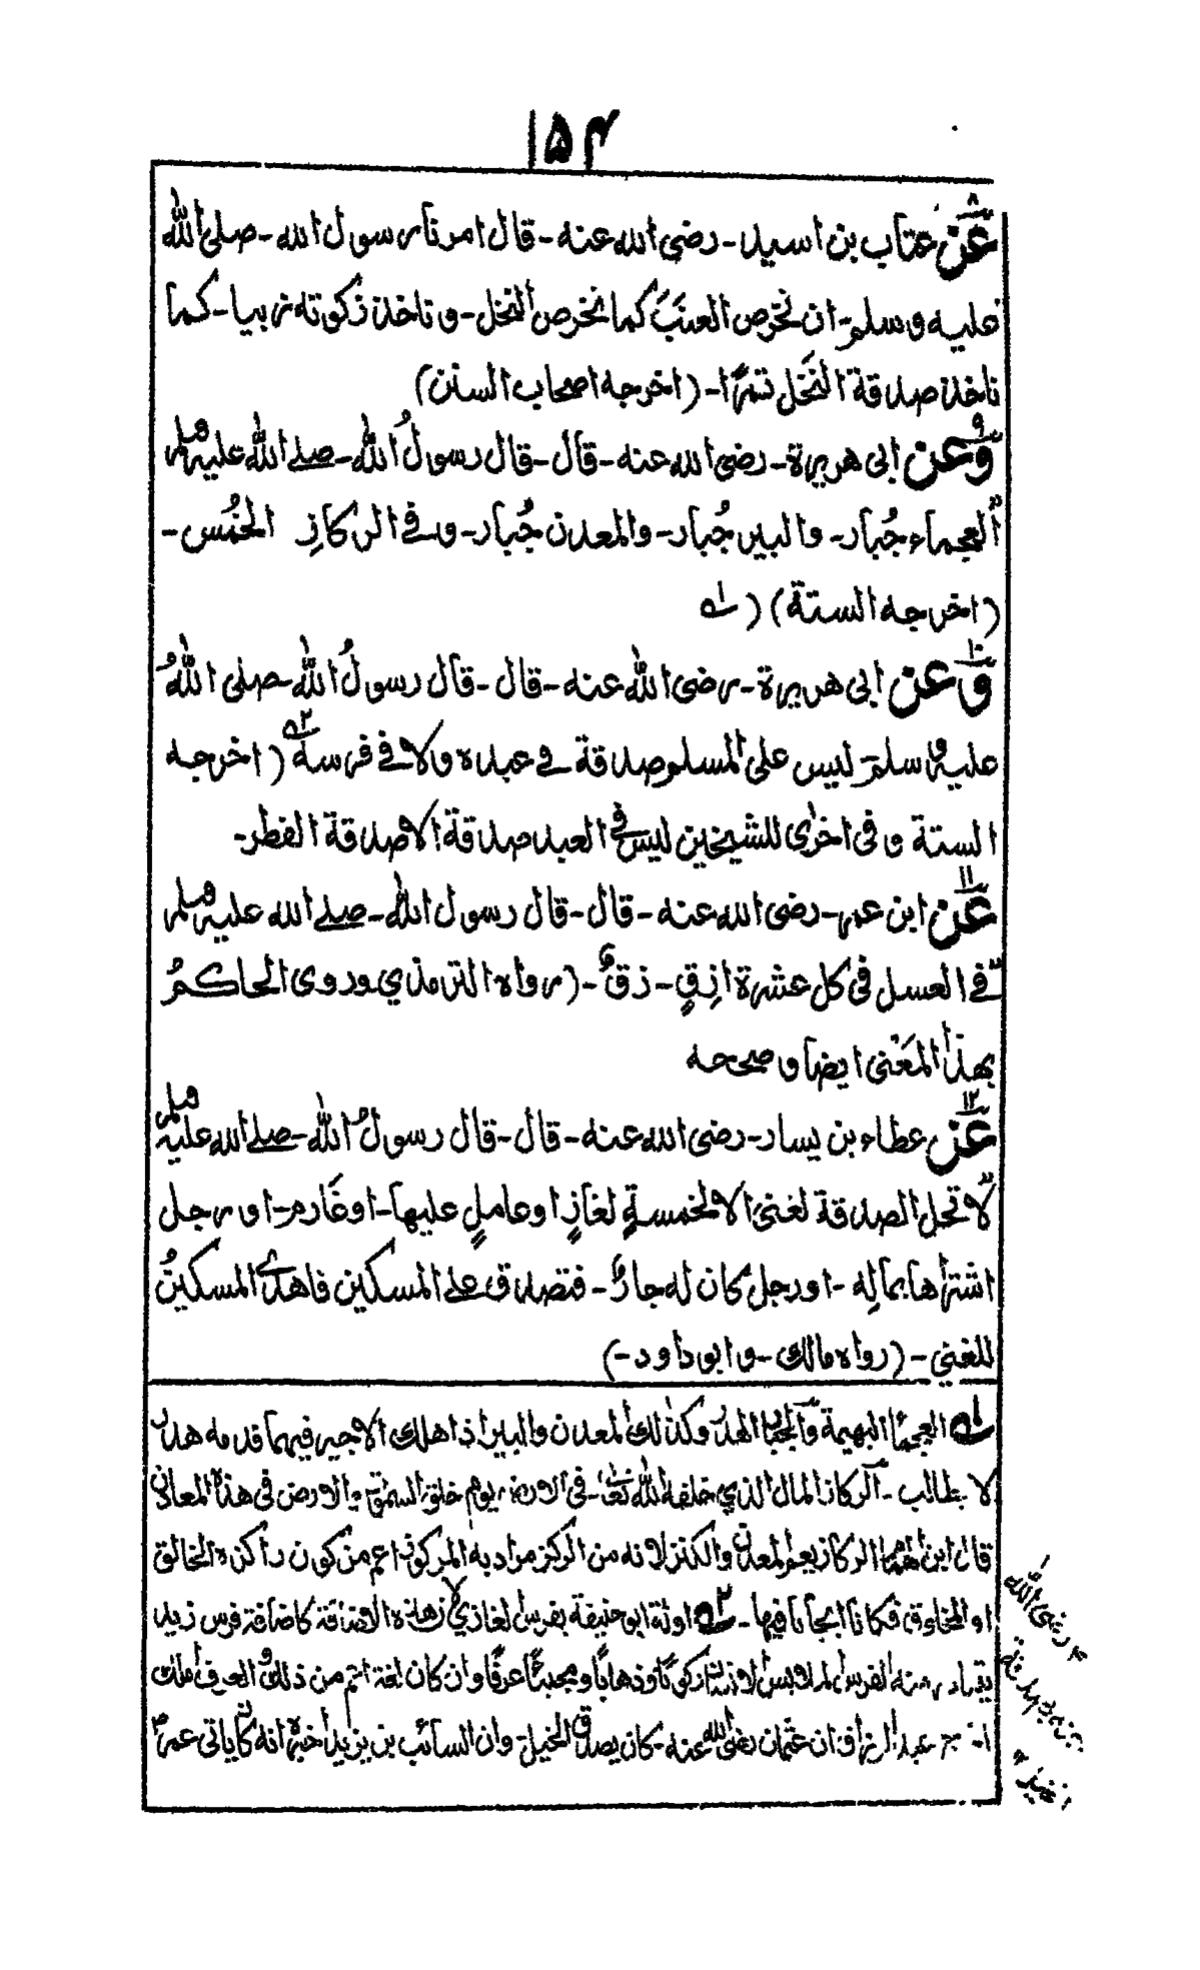 ۱۵۴
۸
عَن عتاب بن اسيد- رضى الله عنه- قال امرنا رسول الله- صلى الله
عليه وسلم- ان نخرص العنب كما نخرص النخل- و ناخذ زكوته زبيبا- كما
ناخذ صدقة النخل تمرًا- (اخرجه اصحاب السنن)
۹
وَعن ابى هريرة- رضى الله عنه- قال- قال رسولُ الله- صلے الله عليه وسلم
العجماء جُبار- والبير جُبار- والمعدن جُبار- وفے الركاز الخمُس-
(اخرجه الستة) (۱ے
۱۰
وَعن ابى هريرة- رضى الله عنه- قال- قال رسولُ الله- صلى اللهُ
عليه وسلم ليس على المسلم صدقة فے عبده ولا فے فرسه ۲ے (اخرجه
الستة و فى اخرى للشيخين ليس فے العبد صدقة الا صدقة الفطر-
۱۱
عَن ابن عمر- رضى الله عنه- قال- قال رسول الله- صلے الله عليه وسلم
فے العسل فى كل عشرة ازقٍ- زقٌ- (رواه الترمذي وروى الحاكمُ
بهذا المعنى ايضا وصححه
۱۲
عَن عطاء بن يسار- رضى الله عنه- قال- قال رسولُ الله- صلے الله عليه وسلم
لا تحل الصدقة لغنى الا لخمسةٍ لغازٍ او عاملٍ عليها- او غارم- او رجل
اشتراها بمالِه- او رجل كان له جارٌ- فتصدق علے المسكين فاهدے المسكينُ
للغني- (رواه مالك- و ابو داود-)
۱ے العجماء البهيمة والجبار الهدر وكذلك المعدن والبير اذا هلك الاجير فيهما فدمه هدر
لا يطالب- الركاز المال الذي خلقه الله تعالى- فى الارض يوم خلق السموات والارض فى هذه المعادن
قال ابن الهمام الركاز يعم المعدن والكنز لانه من الركز مراد به المركوز اعم من كون راكزه الخالق
او المخلوق فكانا ايجابا فيها- ۲ے اوله ابو حنيفة بفرس لغازي لان هذه الاضافة كاضافة فرس زيد
يتبادر منه الفرس لملابس الانسان ركوبا وذهابا ومجيئا عرفا وان كان لغة اتم من ذلك والعرف املك
اخرج عبد الرزاق ان عثمان رضى الله عنه- كان يصدق الخيل وان السائب بن يزيد اخبره انه كان ياتى عمر
رضى الله
بصدقة